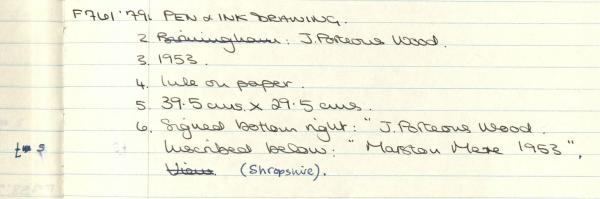 F761'79. PEN & INK DRAWING.
2 Birmingham: J. Porteous Wood.
3. 1953.
4. Ink on paper.
5. 39.5 cms. x 29.5 cms.
6. Signed bottom right: "J. Porteous Wood.
Inscribed below: "Marston Mere 1953",
Views (Shropshire).